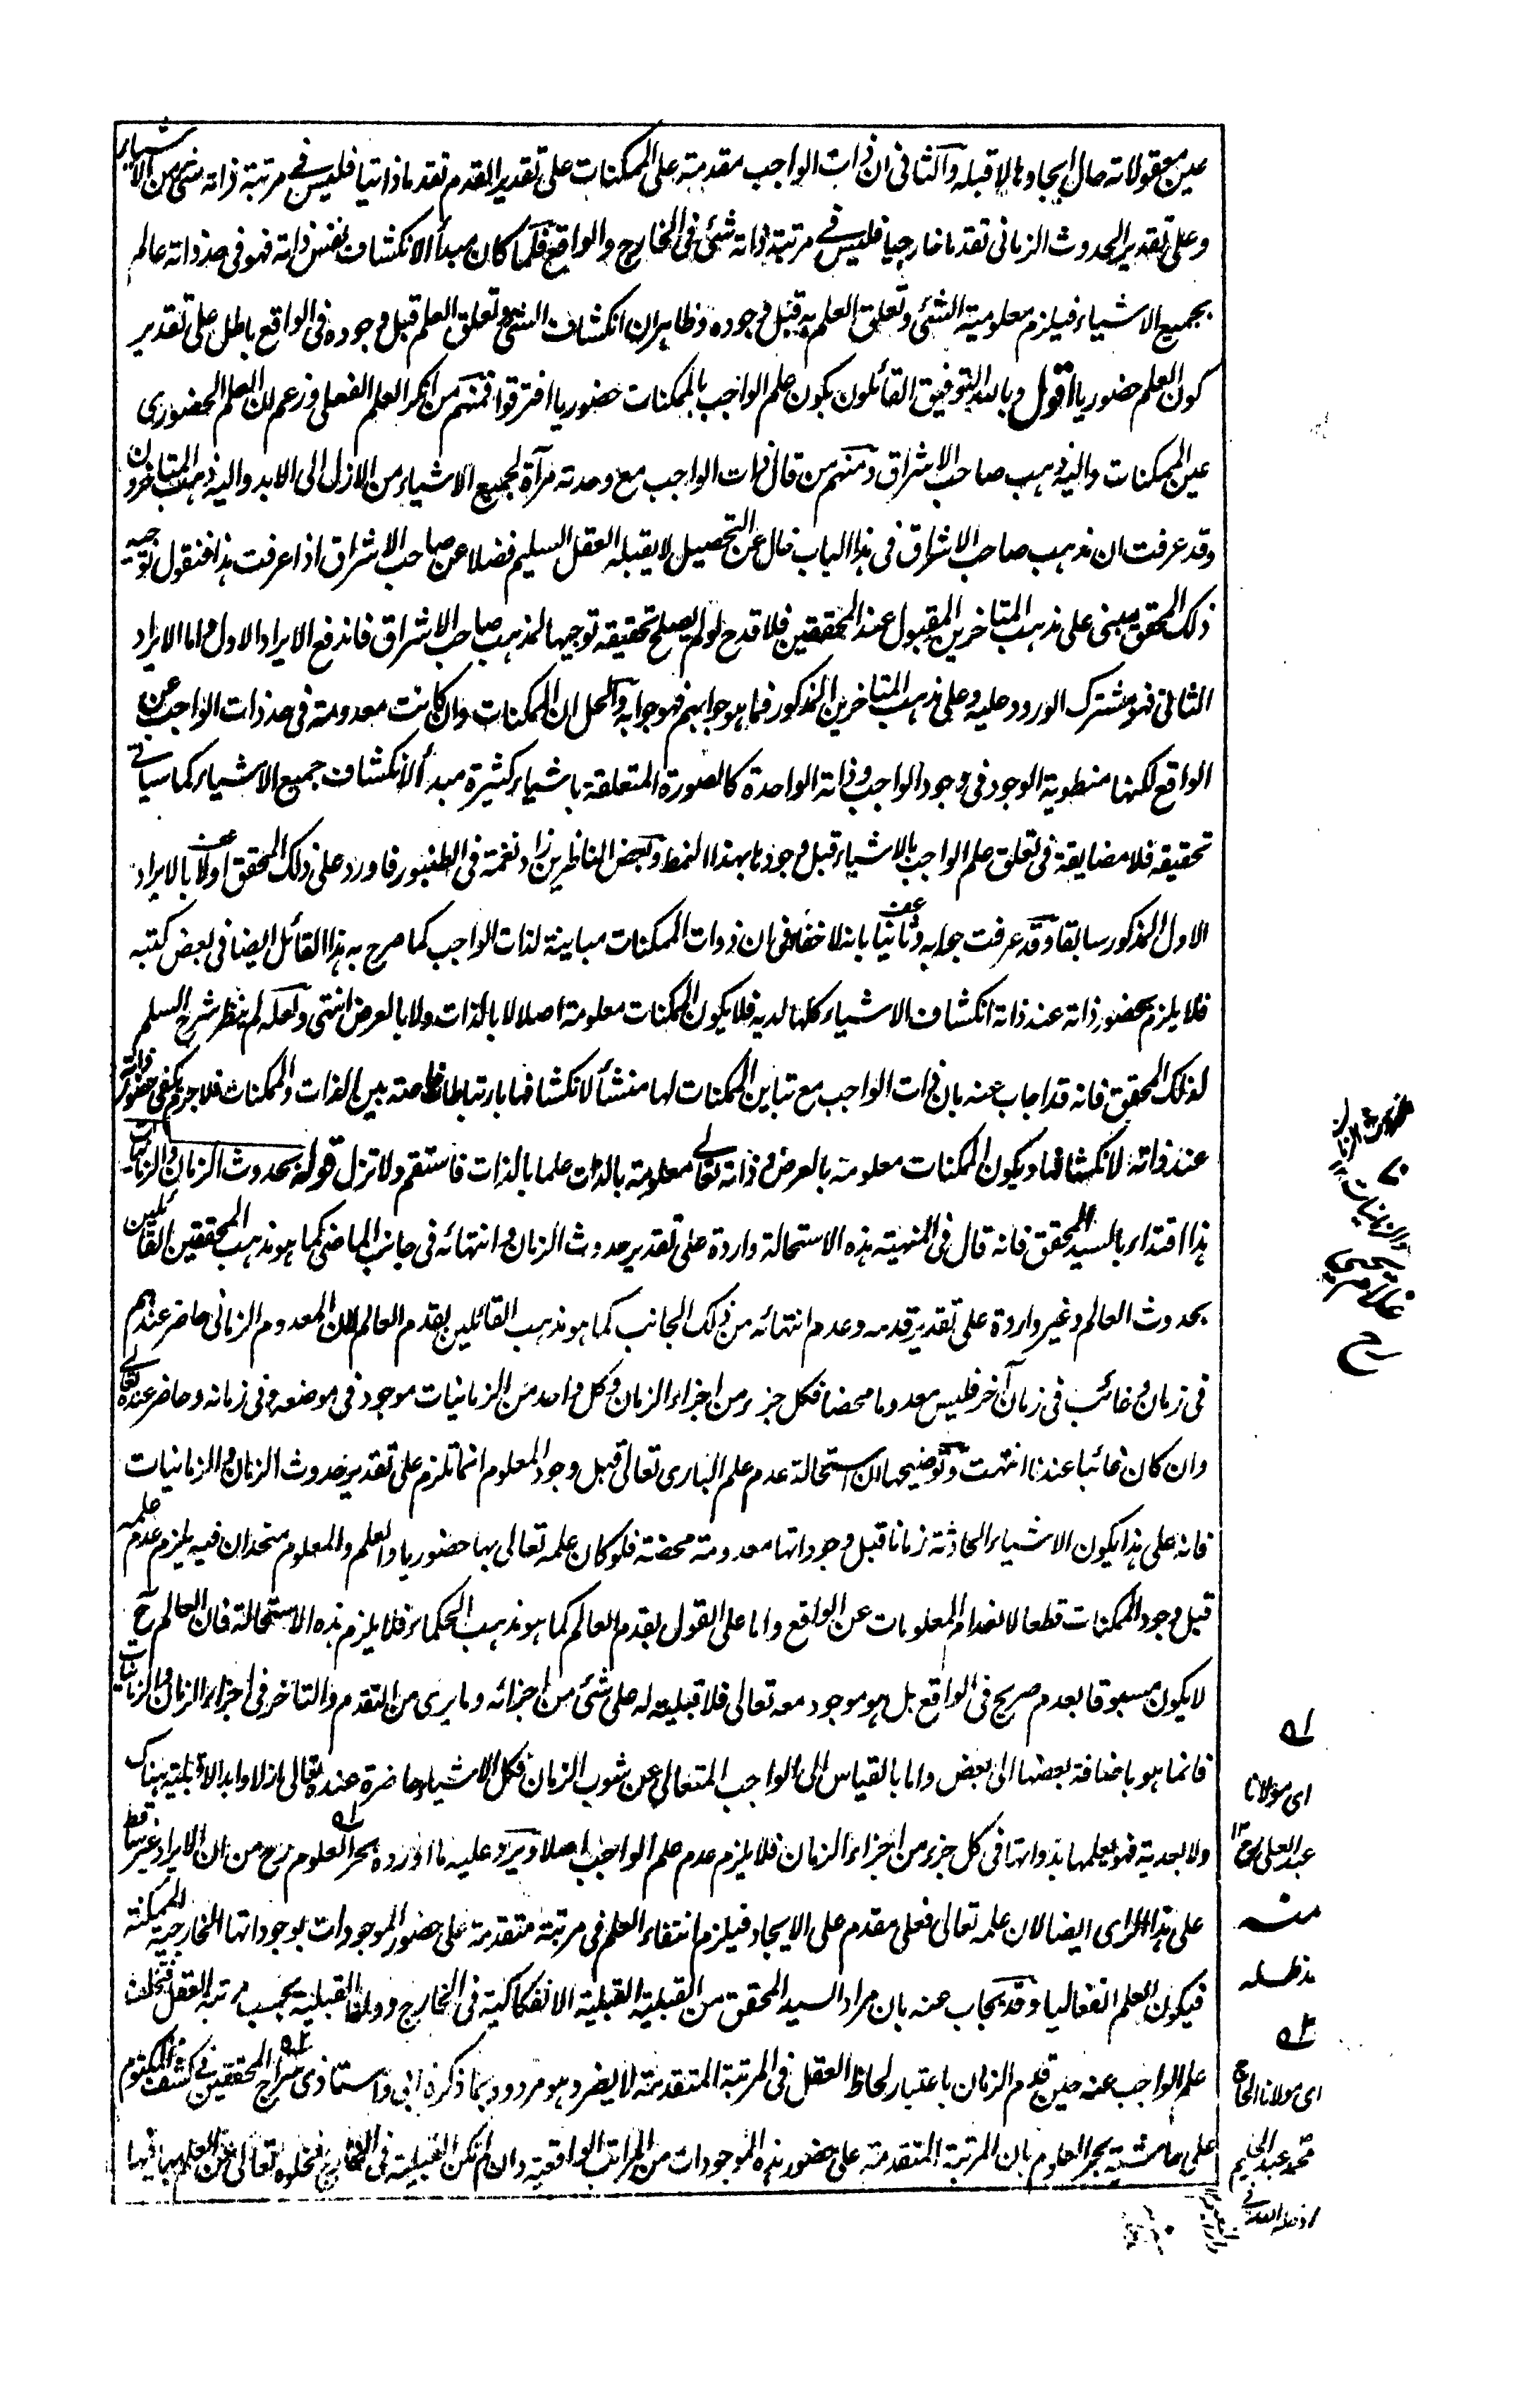 عين معقولاته حال ايجادها لا قبله والثانى ان ذات الواجب مقدمة على الممكنات على تقدير القدم تقدما ذاتيا فليس فى مرتبة ذاته شئ من الاشياء
وعلى تقدير الحدوث الزمانى تقدما خارجيا فليس فى مرتبة ذاته شئ فى الخارج والواقع فلما كان مبدأ الانكشاف نفس ذاته فهو فى حد ذاته عالم
بجميع الاشياء فيلزم معلومية الشئ وتعلق العلم به قبل وجوده وظاهر ان انكشاف الشئ وتعلق العلم قبل وجوده فى الواقع باطل على تقدير
كون العلم حضوريا اقول وبالله التوفيق القائلون بكون علم الواجب بالممكنات حضوريا افترقوا فمنهم من انكر العلم الفعلى وزعم ان العلم الحضورى
عين الممكنات واليه ذهب صاحب الاشراق ومنهم من قال ذات الواجب مع وحدته مرآة لجميع الاشياء من الازل الى الابد واليه ذهب المتاخرون
وقد عرفت ان مذهب صاحب الاشراق فى هذا الباب خال عن التحصيل لا يقبله العقل السليم فضلا عن صاحب الاشراق اذا عرفت هذا فنقول توجيه
ذلك المحقق مبنى على مذهب المتاخرين المقبول عند المحققين فلا قدح لو لم يصلح تحقيقه توجيها لمذهب صاحب الاشراق فاندفع الايراد الاول واما الايراد
الثانى فهو مشترك الورود عليه وعلى مذهب المتاخرين المذكور فما هو جوابهم فهو جوابه والحل ان الممكنات وان كانت معدومة فى حد ذات الواجب عن
الواقع لكنها منطوية الوجود فى وجود الواجب وذاته الواحدة كالصورة المتعلقة باشياء كثيرة مبدأ لانكشاف جميع الاشياء كما سياتى
تحقيقه فلا مضايقة فى تعلق علم الواجب بالاشياء قبل وجودها بهذا النمط وبعض الناظرين زاد نغمة فى الطنبور فاورد على ذلك المحقق اولا بالايراد
الاول المذكور سابقا وقد عرفت جوابه وثانيا بانه لا خفاء فى ان ذوات الممكنات مباينة لذات الواجب كما صرح به هذا القائل ايضا فى بعض كتبه
فلا يلزم بحضور ذاته عند ذاته انكشاف الاشياء كلها لديه فلا يكون الممكنات معلومة اصلا لا بالذات ولا بالعرض انتهى ولعله لم ينظر شرح السلم
لذلك المحقق فانه قد اجاب عنه بان ذات الواجب مع تباين الممكنات لها منشأ لانكشافها بارتباط خاصة بين الذات والممكنات فلا جرم يكفى حضور ذاته
عند ذاته لانكشافها ويكون الممكنات معلومة بالعرض وذاته تعالى معلومة بالذات علما بالذات فاستقم ولا تزل قوله بحدوث الزمان والزمانيات
هذا اقتداء بالسيد المحقق فانه قال فى المنهية هذه الاستحالة واردة على تقدير حدوث الزمان وانتهائه فى جانب الماضى كما هو مذهب المحققين القائلين
بحدوث العالم وغير واردة على تقدير قدمه وعدم انتهائه من ذلك الجانب كما هو مذهب القائلين بقدم العالم لان المعدوم الزمانى حاضر عندهم
فى زمان وغائب فى زمان آخر فليس معدوما محضا فكل جزء من اجزاء الزمان وكل واحد من الزمانيات موجود فى موضعه وفى زمانه وحاضر عنده تعالى
وان كان غائبا عندنا انتهت وتوضيحها ان استحالة عدم علم البارى تعالى قبل وجود المعلوم انما تلزم على تقدير حدوث الزمان والزمانيات
فانه على هذا يكون الاشياء الحادثة زمانا قبل وجوداتها معدومة محضة فلو كان علمه تعالى بها حضوريا والعلم والمعلوم متحدان فيه يلزم عدم علمه
قبل وجود الممكنات قطعا لانعدام المعلومات عن الواقع واما على القول بقدم العالم كما هو مذهب الحكماء فلا يلزم هذه الاستحالة فان العالم ح
لا يكون مسبوقا بعدم صريح فى الواقع بل هو موجود معه تعالى فلا قبلية له على شئ من اجزائه وما يرى من التقدم والتاخر فى اجزاء الزمان والزمانيات
فانما هو باضافة بعضها الى بعض واما بالقياس الى الواجب المتعالى عن شوب الزمان فكل الاشياء حاضرة عنده تعالى ازلا وابدا لا قبلية هناك
ولا بعدية فهو يعلمها بذواتها فى كل جزء من اجزاء الزمان فلا يلزم عدم علم الواجب اصلا ويرد عليه ما اورده بحر العلوم رح من ان الايراد غير ساقط
على هذا الراى ايضا لان علمه تعالى فعلى مقدم على الايجاد فيلزم انتفاء العلم فى مرتبة متقدمة على حضور الموجودات بوجوداتها الخارجية الممكنة
فيكون العلم انفعاليا وقد يجاب عنه بان مراد السيد المحقق من القبلية القبلية الانفكاكية فى الخارج دون القبلية بحسب مرتبة العقل فتخلف
علم الواجب عنه حين قدم الزمان باعتبار لحاظ العقل فى المرتبة المتقدمة لا يضر وهو مردود بما ذكره ابى واستاذى سراج المحققين فى كشف المكتوم
على حاشية بحر العلوم بان المرتبة المتقدمة على حضور هذه الموجودات من المراتب الواقعية وان لم تكن القبلية فى الخارج فخلوه تعالى عن العلم بها فيها
والزمانيات
غلام يحيى
رح
ا
اى مولانا
عبد العلى رح ١٢
منه
مد ظله
٢
اى مولانا الحاج
محمد عبد الحليم
ادخله الله فى